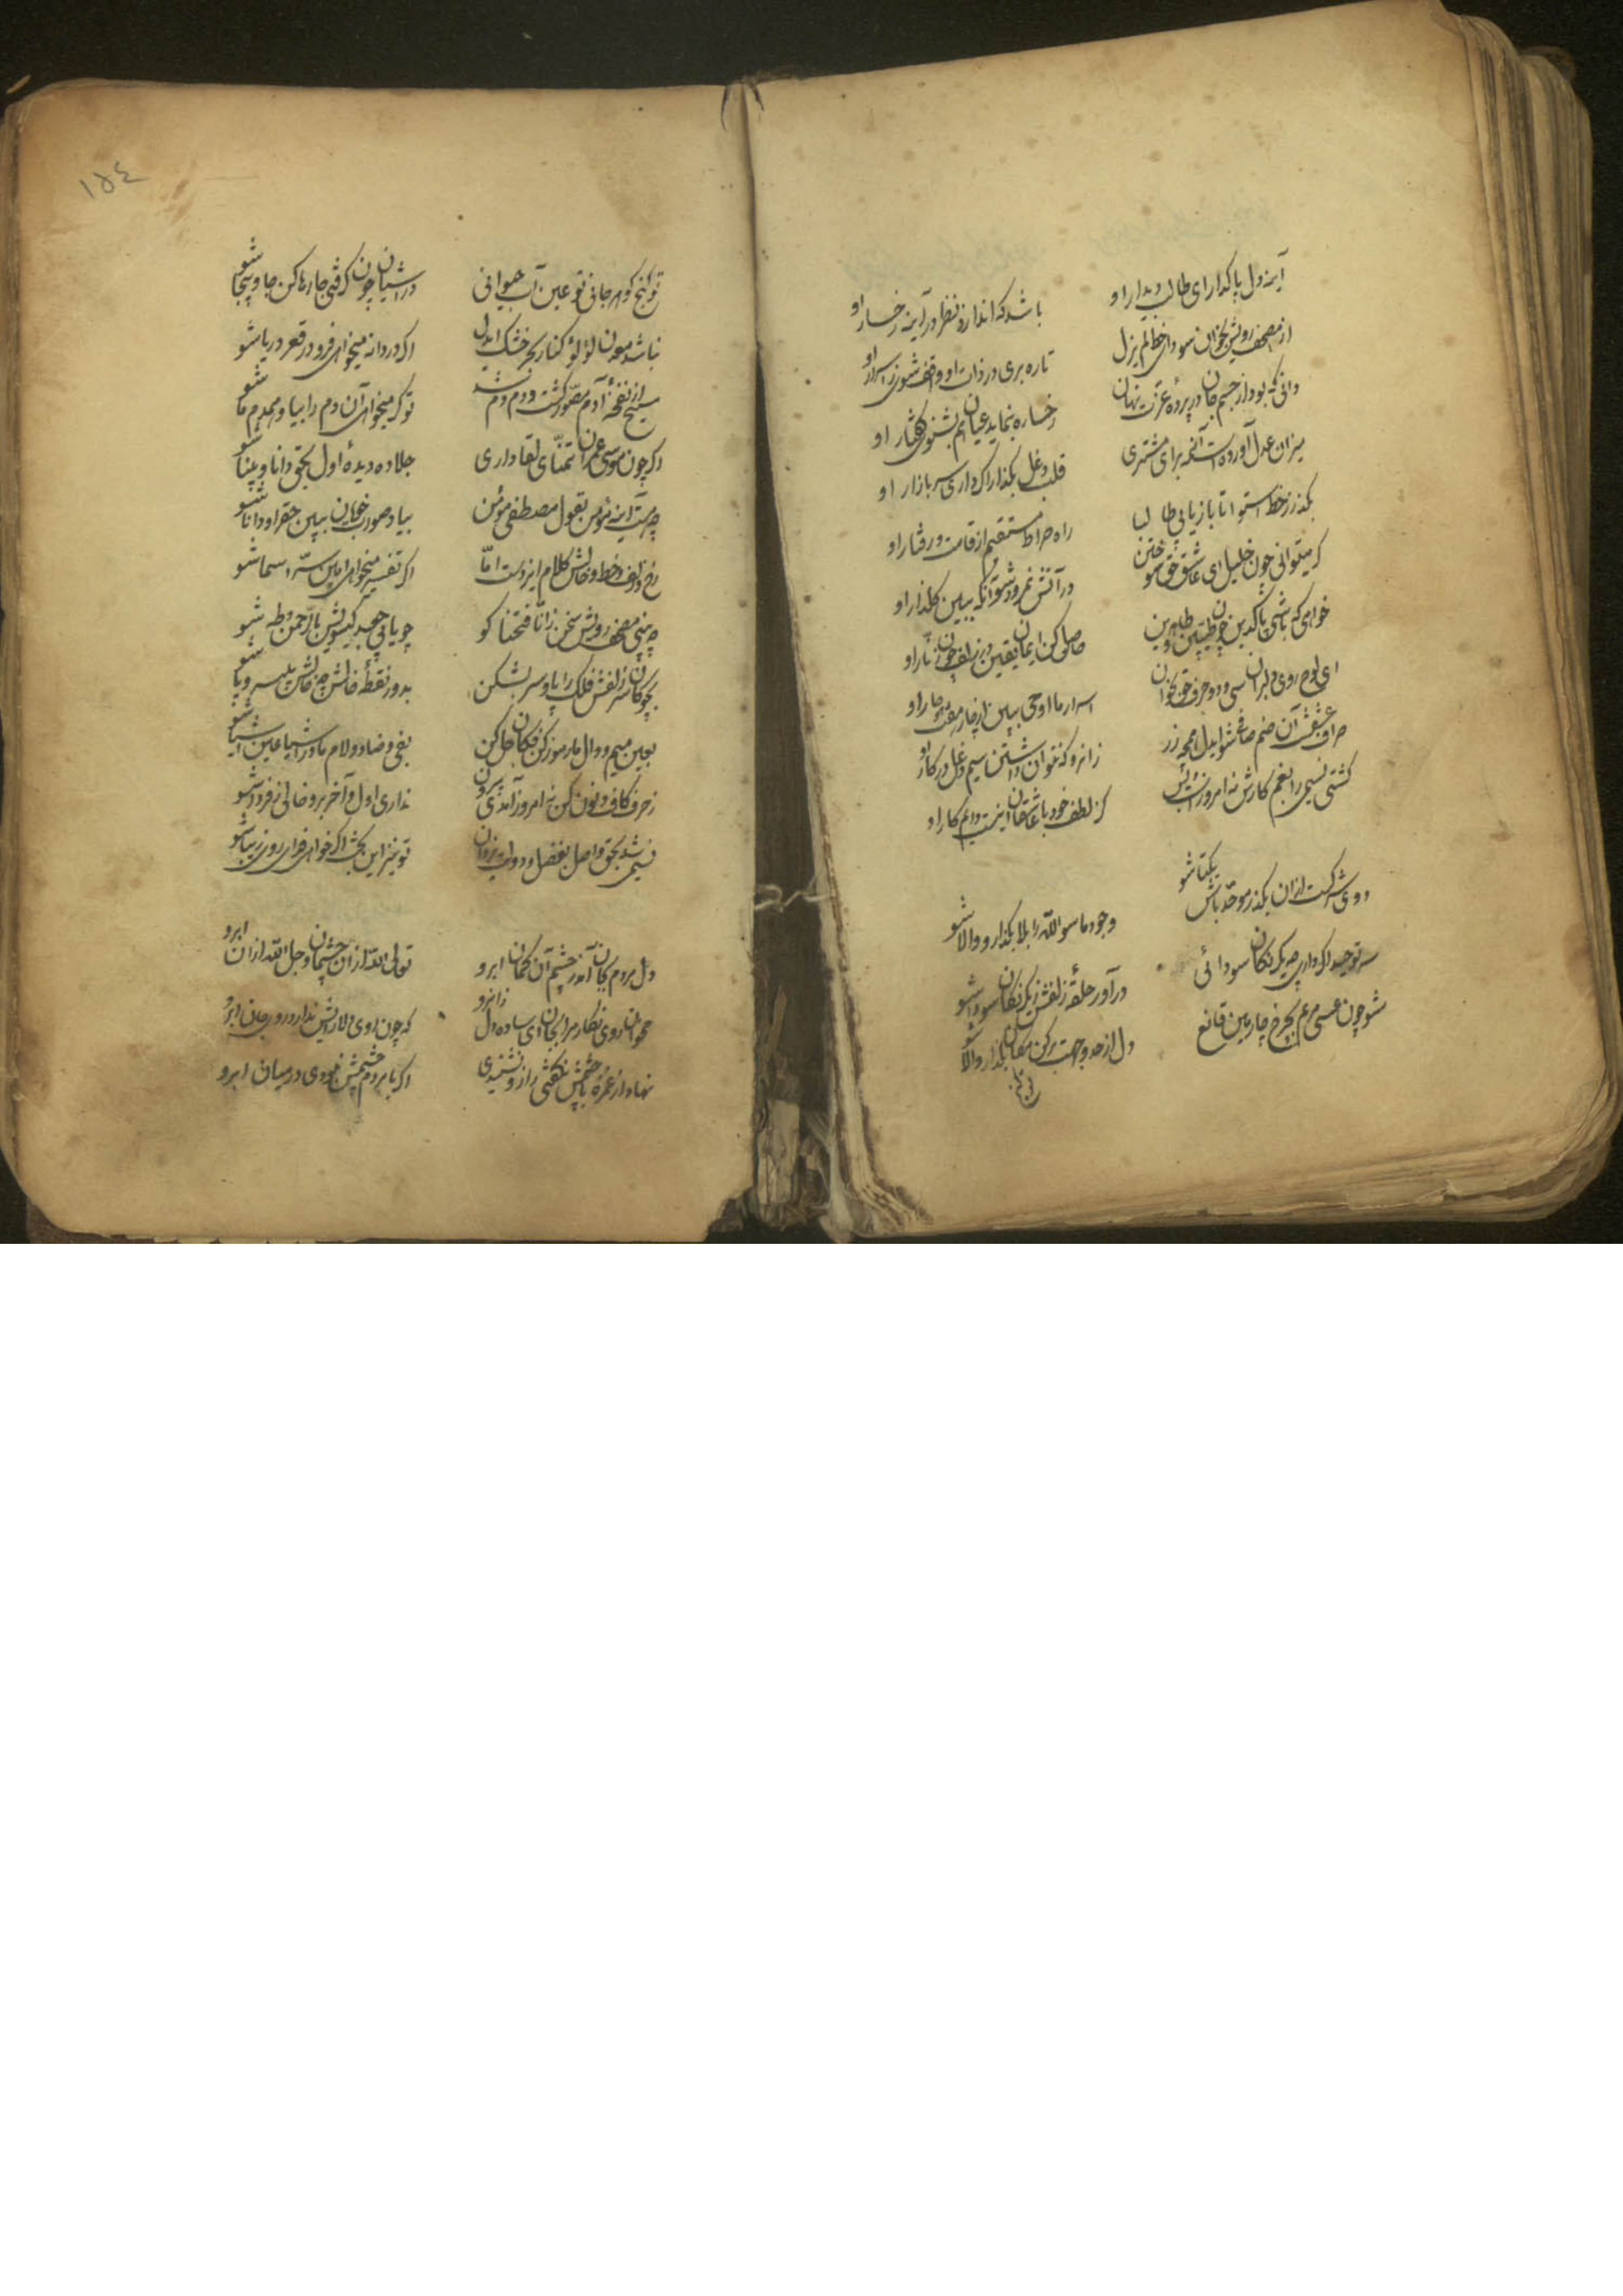 آینه دل پاک دار ای طالب دیدار او
باشد که اندازد نظر در آینه رخسار او
از مصحف رویش بخوان سودای خط لم یزل
تا ره بری در ذات او واقف شوی ز اسرار او
دانی که بود از جسم جان در پرده عزت نهان
رخساره بنماید عیان هم بشنوی گفتار او
میزان عدل آورده است آنمه برای مشتری
قلب دغل بگذار اگر داری سر بازار او
بگذر ز خط استوا تا بازیابی طالبا
راه صراط مستقیم از قامت و رفتار او
گر میتوانی چون خلیل ای عاشق حق سوختن
در آتش نمرود شو آنگه ببین گلزار او
خواهی که باشی پاکدین چون طیبین و طاهرین
حاصل کن ایمان یقین در زلف چون زنار او
ای لوح روی دلبران سی و دو حرف حق بخوان
اسرار ما اوحی ببین از
صراف عشقت آن صنم صافی شو ایدل همچو زر
زانرو که نتوان داشتن سیم دغل در کار او
کشتی نسیمی را بغم کارش نه امروز است این
کز لطف خود با عاشقان اینست دایم کار او
دوی شرکست از آن بگذر موحد باش یکتا شو
وجود ما سوی الله را بلا بگذار و والا شو
سر توحید اگر داری چو یکرنگان سودائی
درآور حلقه زلفش ز یکرنگان سودا شو
مشو چون عیسی مریم بچرخ چارمین قانع
دل از حد و جهت برکن مکان بگذار و والا شو
١٥٤
تو گنج گوهر جانی تو عین آب حیوانی
در اشیا چون گرفتی جا رها کن جا و بیجا شو
نباشد معدن لؤلؤ کنار بحر خشک ایدل
اگر دردانه میخواهی فرو در قعر دریا شو
مسیح از نفخه آدم مصور گشت و دم دم شد
تو گر میخواهی آن دم را بیا و همدم ما شو
اگر چون موسی عمران تمنای لقا داری
جلا ده دیده اول بحق دانا و بینا شو
چو مرآت آینه مؤمن بقول مصطفی مؤمن
بیا در صورت خوبان ببین حق را و دانا شو
رخ و زلف و خط و خالش کلام ایزدست اما
اگر تفسیر میخواهی امین سر اسما شو
چو بینی مصحف رویش سخن ز انا فتحنا گو
چو یابی جعد گیسویش با الرحمن و طه شو
بچوگان سر زلفش فلک را پا و سر بشکن
بدور نقطه خالش چو خالش بی سر و پا شو
بعین میم و دال ما رموز کن فکان حل کن
بفی و ضاد و لام ما در اشیا عین اشیا شو
ز حرف کاف و نون کن نه امروز آمدی بیرون
نداری اول و آخر برو خالی ز فردا شو
نسیمی شد بحق واصل بفضل دولت یزدان
تو نیز این بخت اگر خواهی فدای روی زیبا شو
دل مردم کمان آمد ز چشم آن کمان ابرو
تعالی الله از آن چشمان و جل الله از آن ابرو
روی نگار مرا بجان ای ساده دل زانرو
که چون روی دلارایش ندارد حور جان ابرو
نهاد از غمزه با چشمش نگفتی راز
اگر با مردم چشمش نبودی در میان ابرو